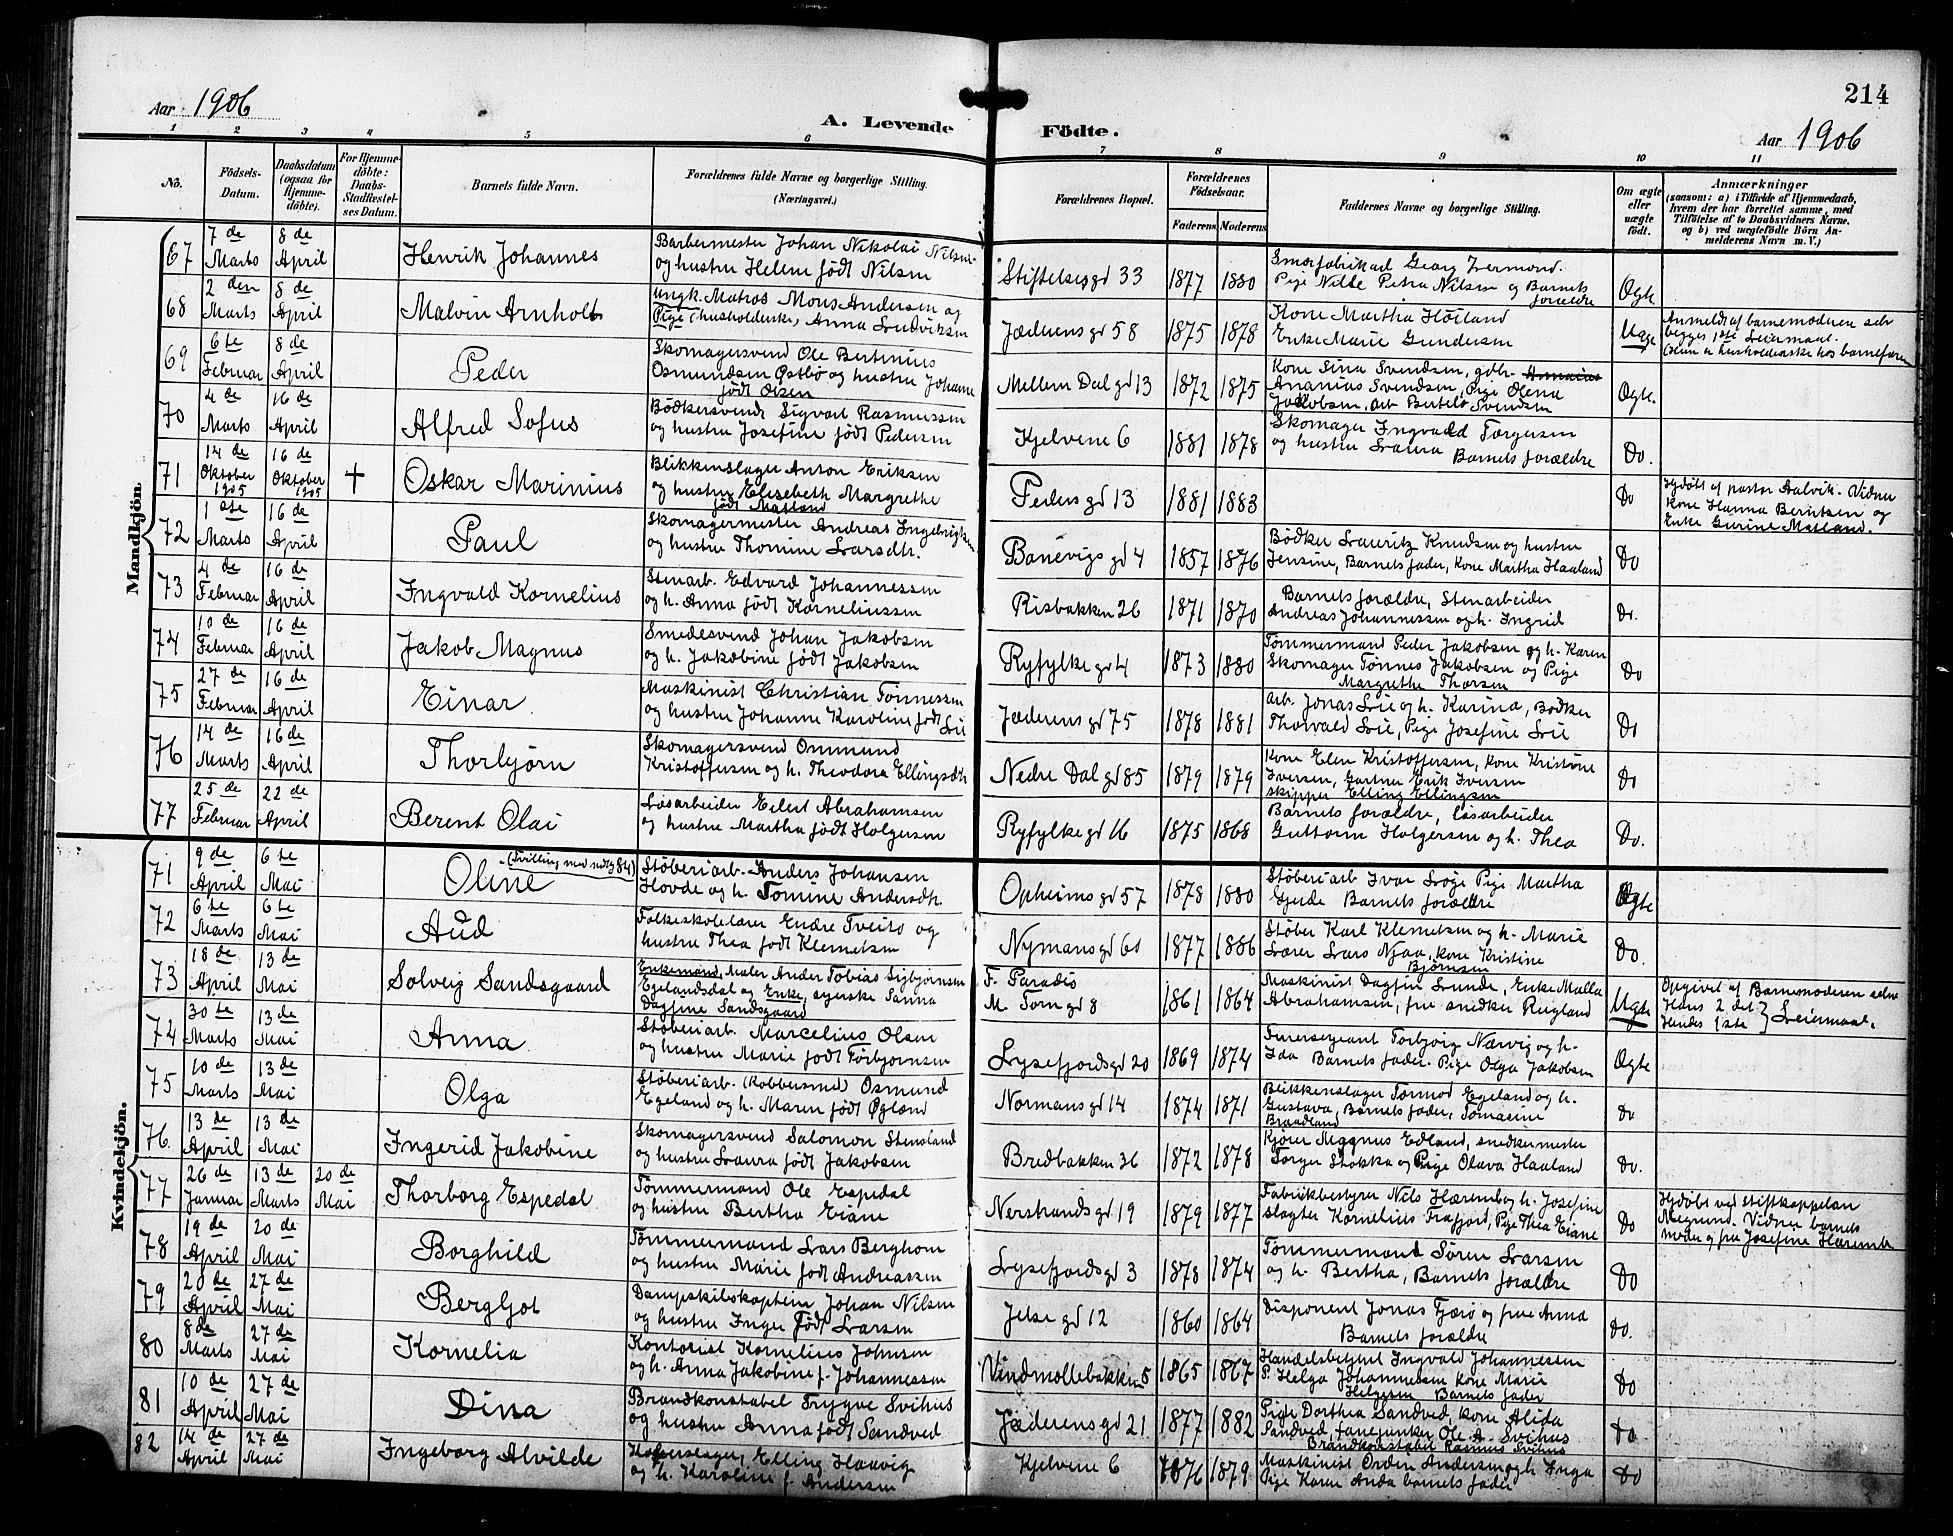 214
Aar 1906
A. Levende Födte.
Aar 1906
1 2 3 4 5 6 7 8 9 10 11
No.
Födsels-Datum.
Daabsdatum (ogsaa for Hjemme-döbte).
For Hjemme-döbte: Daabs-Stadfæstelses Datum.
Barnets fulde Navn.
Forældrenes fulde Navne og borgerlige Stilling. (Næringsvei.)
Forældrenes Bopæl.
Forældrenes Födselsaar.
Faderens. Moderens.
Faddernes Navne og borgerlige Stilling.
Om ægte eller uægte födt.
Anmærkninger
(saasom: a) i Tilfælde af Hjemmedaab, hvem der har forrettet samme, med Tilföielse af to Daabsvidners Navne, og b) ved uægtefödte Börn Anmelderens Navn m. V.)
Mandkjön.
67 7de Marts 8de April Henrik Johannes
Barbermester Johan Nikolai Nilsen
og hustru Helene født Nilsen
Stiftelsesgd 33 1877 1880
Pige Nille Petra Nilsen og Barnets forældre
Ægte
68 2den Marts 8de April Malvin Arnholt
Ungk. Matros Mons Andersen og
Pige (husholderske) Anna Ludviksen
Jæderensgd 58 1875 1878
Kone Martha Höiland
Enke Marie Gundersen
Uægte
Anmeldt af barnemoderen selv
begges 1ste Leiermaal.
69 6te Februar 8de April Peder
Skomagersvend Ole Bertinius
Osmundsen Østbø og hustru Johanne
født Olsen
Mellem Dalgd 13 1872 1875
Kone Sina Svendsen, gdbr.
Ananias Svendsen, Pige Olena
Jakobsen, arb Bertels Svendsen
Ægte.
70 4de Marts 16de April Alfred Sofus
Bødkersvend Sigvart Rasmussen
og hustru Josefine født Pedersen
Kjelvene 6 1881 1878
Skomager Ingvald Torgersen
og hustru Laura Barnets forældre
Do.
71 14de Oktober 1905 16de Oktober 1905 † Oskar Marinius
Blikkenslager Anton Eriksen
og hustru Elisebeth Margrethe
født Matland
Pedersgd 13 1881 1883
Do
Hjdøbt af pastor Aalvik. Vidner
kone Hanna Berntsen og
Enke Gurine Matland.
72 1ste Marts 16de April Paul
Skomagermester Andreas Ingebrigtsen
og hustru Thomine Larsdtr.
Banevigsgd 4 1857 1876
Bødker Lauritz Knudsen og hustru
Jensine, Barnets fader, Kone Martha Haaland
Do
73 4de Februar 16de April Ingvald Kornelius
Stenarb. Edvard Johannessen
og h. Anna født Korneliussen
Risbakken 26 1871 1870
Barnets forældre, Stenarbeider
Andreas Johannessen og h. Ingrid
Do.
74 10de Februar 16de April Jakob Magnus
Smedesvend Johan Jakobsen
og h. Jakobine født Jakobsen
Ryfylkegd 4 1873 1880
Tømmermand Peder Jakobsen og h. Karen
Skomager Tønnes Jakobsen og Pige
Margrethe Thorsen
Do
75 27de Februar 16de April Einar
Maskinist Christian Tønnessen
og hustru Johanne Karoline født Lie
Jæderensgd 75 1878 1881
Arb. Jonas Lie og h. Karina, Bødker
Thorvald Lie, Pige Josefine Lie
Do
76 14de Marts 16de April Thorbjørn
Skomagersvend Ommund
Kristoffersen og h. Theodora Ellingsdtr
Nedre Dalgd 85 1879 1879
Kone Elen Kristoffersen, kone Kristine
Iversen, Gartner Erik Iversen
skipper Elling Ellingsen
Do
77 25de Februar 22de April Berent Olai
Løsarbeider Eilert Abrahamsen
og hustru Martha født Holgersen
Ryfylkegd 16 1875 1868
Barnets forældre, Løsarbeider
Guttorm Holgersen og h. Thea
Do.
Kvindekjön.
71 9de April 6te Mai Oline
Støberiarb. Anders Johansen
Hovde og h. Tomine Andersdtr.
Opheimsgd 57 1878 1880
Støberiarb Ivar Løge Pige Martha
Gjerde Barnets forældre
Ægte
72 6te Marts 6te Mai Aud
Folkeskolelærer Endre Tveito og
hustru Thea født Klemetsen
Nymansgd 60 1877 1886
Støber Karl Klemetsen og h. Marie
Lærer Lars Njaa, kone Kristine
Bjørnsen
Do.
73 18de April 13de Mai Solveig Sandsgaard
Enkemand, Maler Ander Tobias Sigbjørnsen
Egelandsdal og Enke, syerske Sanna
Dagfine Sandsgaard
F. Paradis
M. Torngd 8 1861 1864
Maskinist Dagfin Lunde, Enke Malla
Abrahamsen, fru snedker Rugland
Uægte
Opgivet af Barnemoderen selv
Hans 2det
Hendes 1ste } Leiermaal.
74 30te Marts 13de Mai Anna
Støberiarb. Marcelius Olsen
og hustru Marie født Torbjørnsen
Lysefjordsgd 20 1869 1874
Furersergeant Torbjörg Nærvig og h.
Ida Barnets fader Pige Olga Jakobsen
Ægte
75 10de Marts 13de Mai Olga
Støberiarb. (Kobbersmed) Osmund
Egeland og h. Maren født Øgland
Normansgd 14 1874 1871
Blikkenslager Tormod Egeland og h.
Gustava, Barnets fader, Tomasine
Braadland
Do
76 13de April 13de Mai Ingerid Jakobine
Skomagersvend Salomon Stensland
og hustru Laura født Jakobsen
Bredbakken 36 1872 1878
Kjører Magnus Edland, snedkermester
Torger Stokka og Pige Olava Haaland
Do.
77 26de Januar 13de Marts 20de Mai Thorborg Espedal
Tømmermand Ole Espedal
og hustru Bertha Eiane
Nerstrandsgd 19 1879 1877
Fabrikbestyrer Nils Hæremb og h. Josefine
slagter Kornelius Frafjord, Pige Thea Eiane
Do
Hjdøbt ved stiftskappelan
Vidner barnets
moder og fru Josefine Hæremb
78 19de April 20de Mai Borghild
Tømmermand Lars Berghom
og hustru Marie født Andreassen
Lysefjordsgd 3 1878 1874
Tømmermand Søren Larsen
og h. Bertha, Barnets forældre
Do
79 20de April 27de Mai Bergljot
Dampskibskaptein Johan Nilsen
og hustru Inger født Larsen
Jelsegd 12 1860 1864
Disponent Jonas Fjærø og frue Anna
Barnets forældre
Do.
80 8de Marts 27de Mai Kornelia
Kontorist Kornelius Johnsen
og h. Anna Jakobine f. Johannessen
Vindmøllebakken 5 1865 1867
Handelsbetjent Ingvald Johannessen
P. Helga Johannessen kone Marie
Helgesen Barnets fader
Do
81 10de April 27de Mai Dina
Brandkonstabel Trygve Svihus
og hustru Anna født Sandved
Jæderensgd 21 1877 1882
Pige Dorthea Sandved, kone Alida
Sandved, fanejunker Ole A. Svihus
Brandkonstabel Rasmus Svihus
Do
82 14de April 27de Mai Ingeborg Alvilde
Elling Haavig
og h. Karoline f. Andersen
Kjelvene 6 1876 1879
Maskinist Orden Andersen og h. Inga
Pige Karen Anda barnets fader
Do